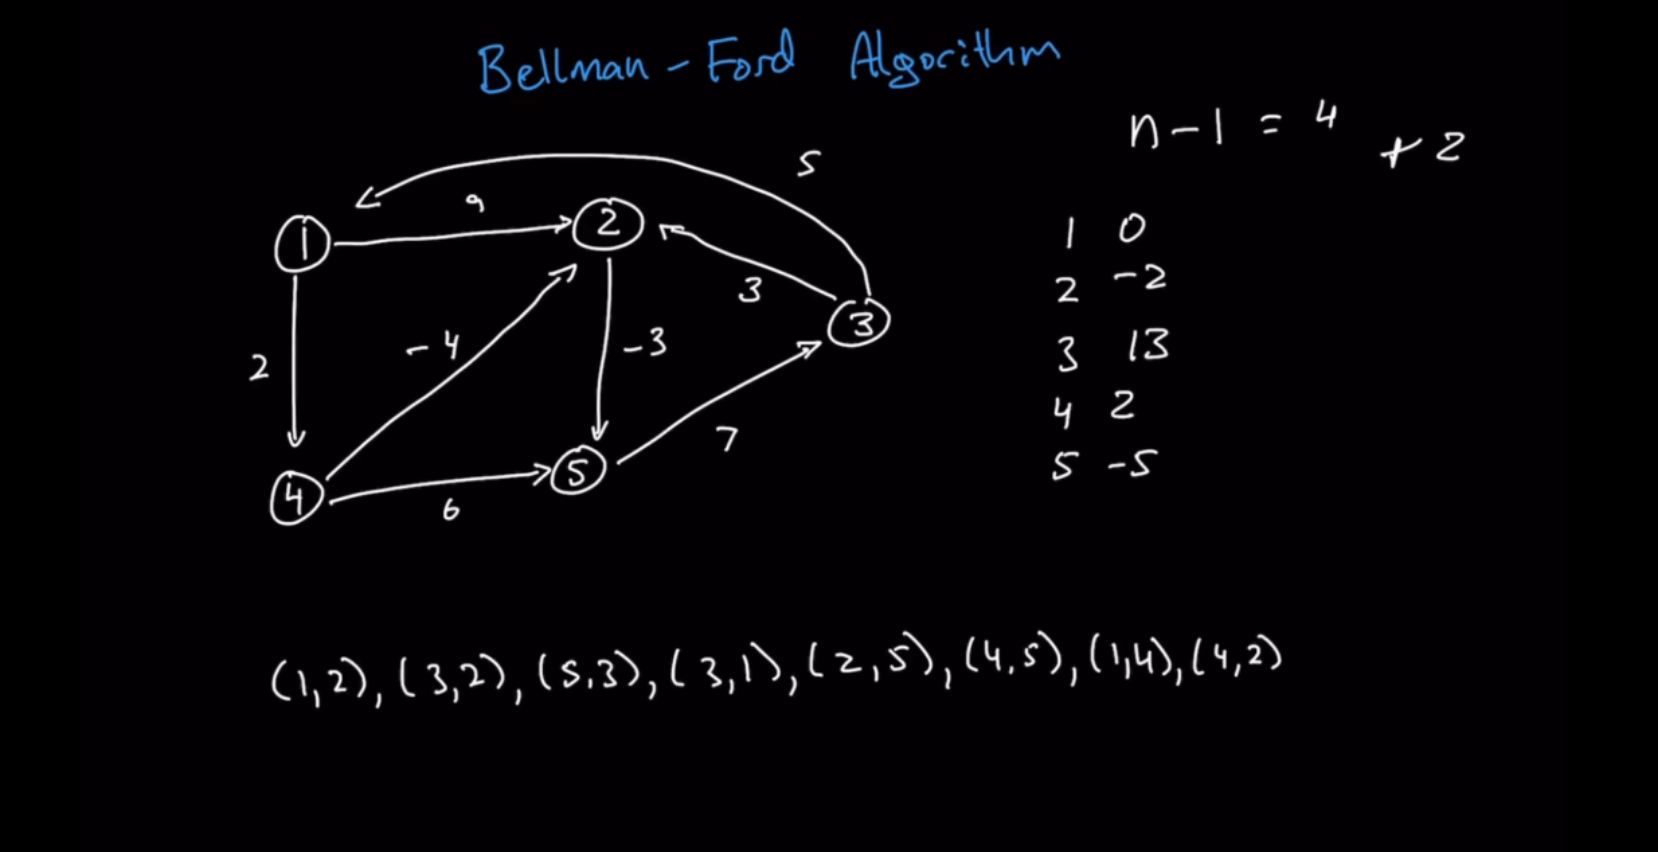 Bellman - Ford Algorithm
n - 1 = 4
+ 2
5
9
1
2
3
3
-4
-3
2
7
4
5
6
1 0
2 -2
3 13
4 2
5 -5
(1,2), (3,2), (5,3), (3,1), (2,5), (4,5), (1,4), (4,2)